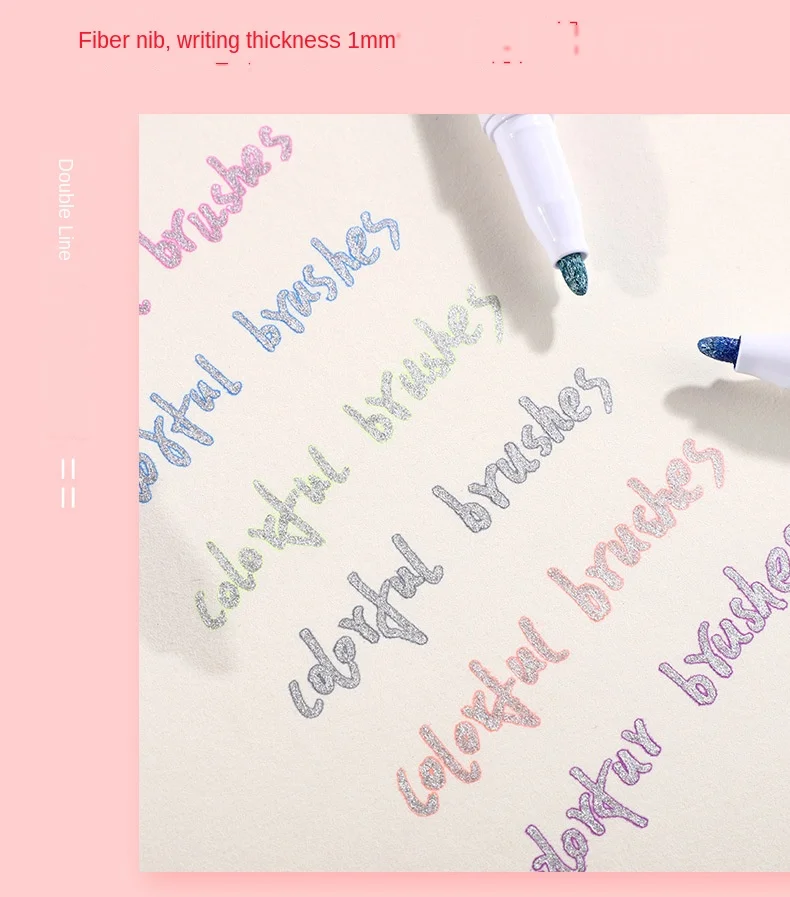 Fiber nib, writing thickness 1mm
Double Line
brushes
brushes
colorful brushes
colorful brushes
colorful brushes
brushes